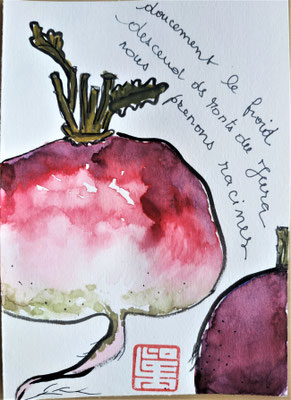 doucement le froid
descend des monts du Jura
nous prenons racines